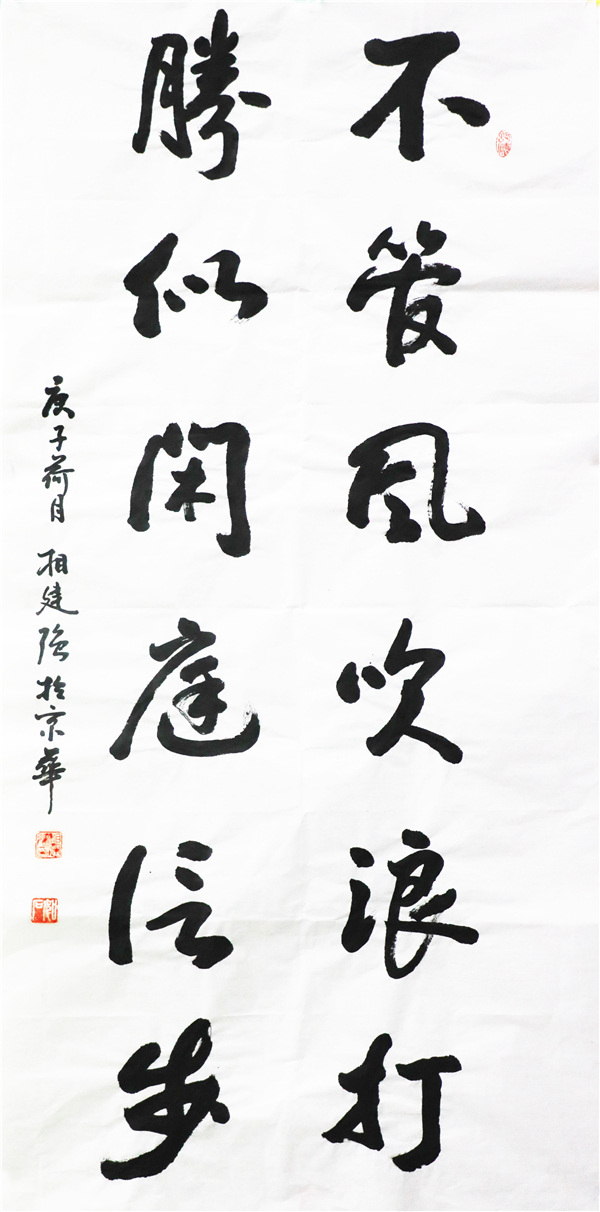 不管風吹浪打
勝似閑庭信步
庚子荷月 相建强於京華